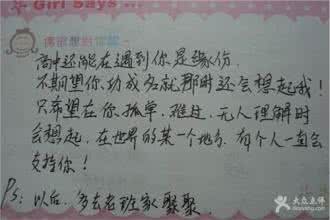 Girl Says...
高中还能在遇到你是缘份.
不期望你功成名就那时还会想起我!
只希望在你孤单.难过.无人理解时
会想起,在世界的某一个地方.有个人一直会
支持你!
Ps: 以后.多去老班家聚聚.
大众点评
dianping.com